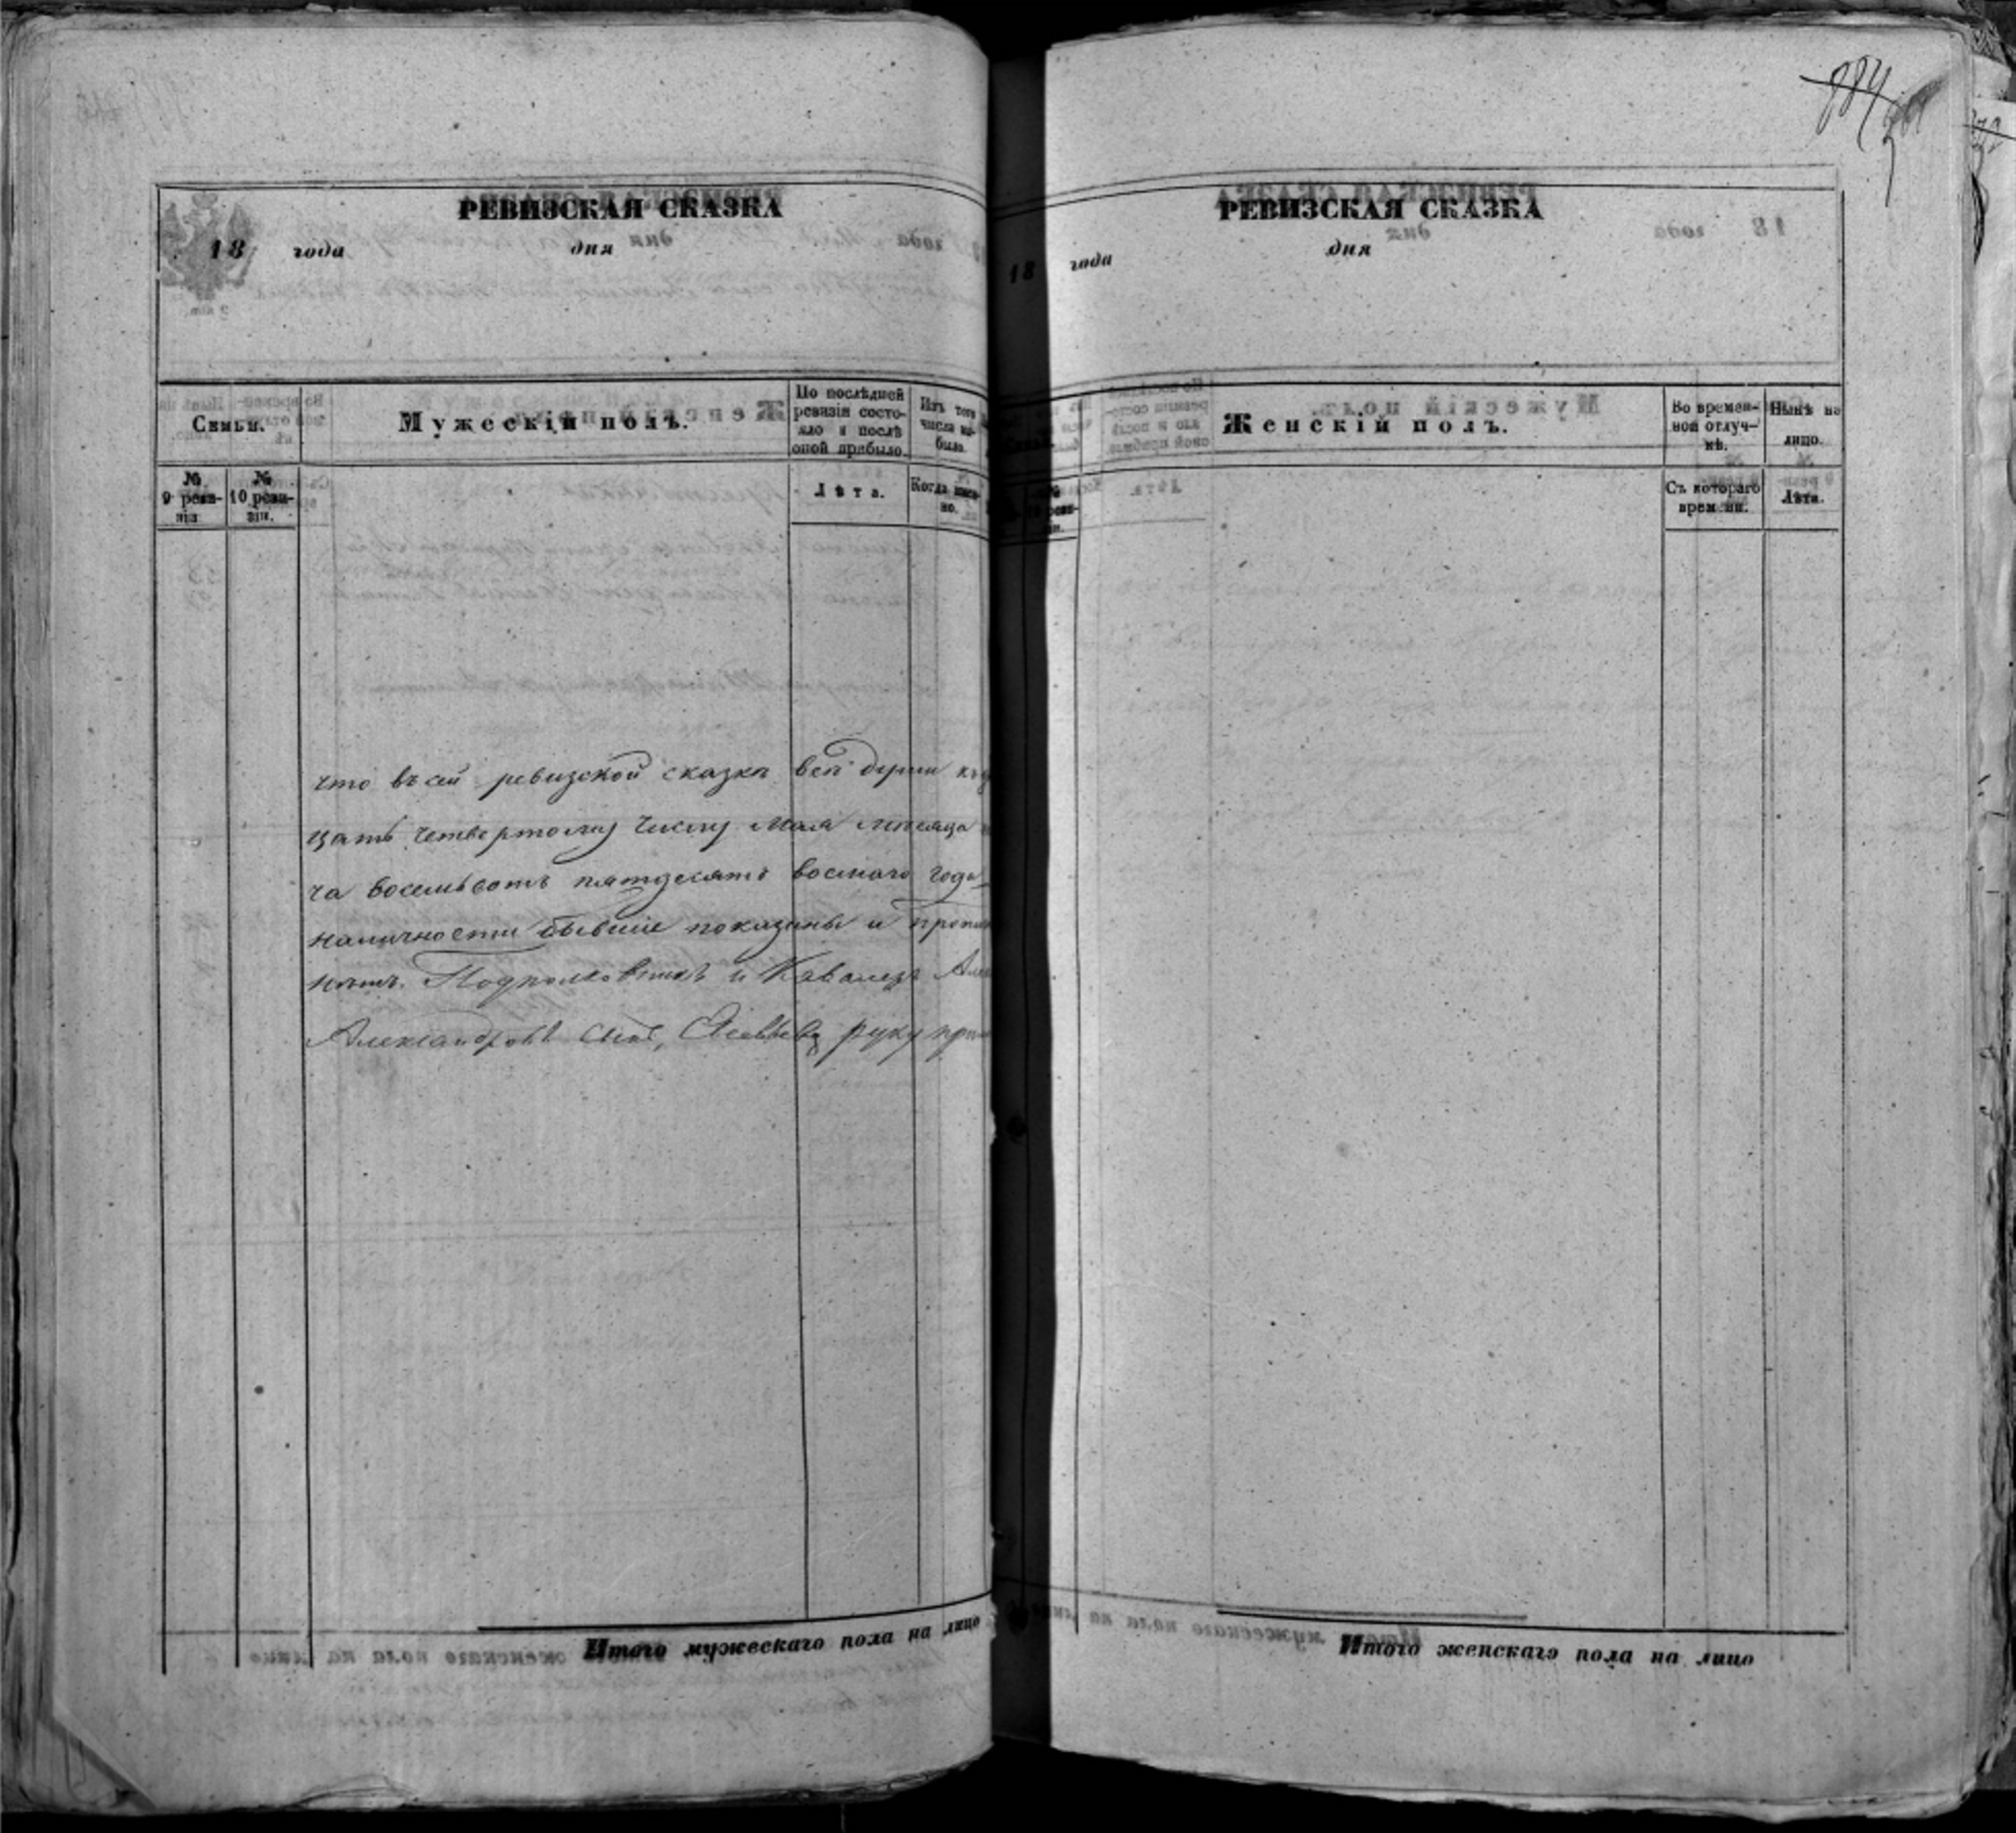 884
РЕВИЗСКАЯ СКАЗКА
18 года дня
Семьи.
Мужескій полъ.
По послѣдней ревизіи состояло и послѣ оной прибыло.
Изъ того числа выбыло.
№ 9 ревизіи
№ 10 ревизіи.
Лѣта.
Когда именно.
что въ сей ревизской сказкѣ всѣ души къ
цать четвертому числу Мая мѣсяца
ча восемьсотъ пятдесятъ восмаго года
наличности бывшіе показаны и
нѣтъ. Подполковникъ и Кавалеръ
Александровъ сынъ, руку
Итого мужескаго пола на лицо
РЕВИЗСКАЯ СКАЗКА
18 года дня
Женскій полъ.
Во временной отлучкѣ.
Нынѣ на лицо.
Съ котораго времени.
Лѣта.
Итого женскаго пола на лицо